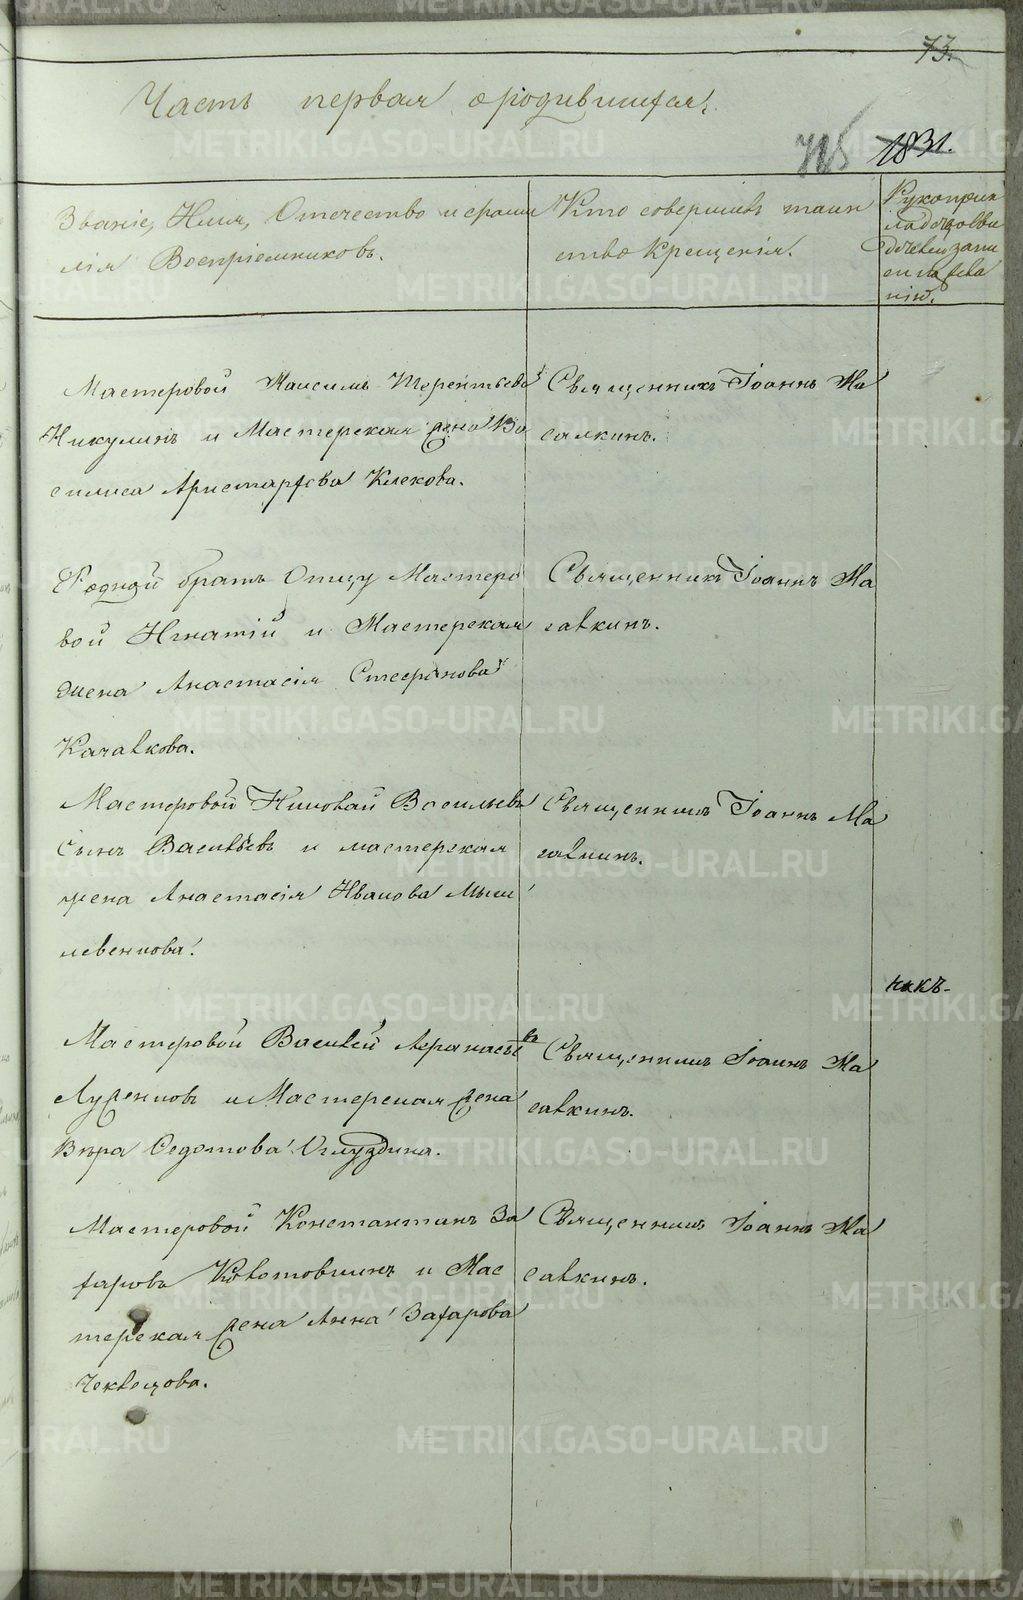 73.
Часть первая о родившихся.
1831.
Званіе, Имя, Отечество и фами
лія Воспріемниковъ.
Кто совершилъ таин
ство Крещенія.
Рукоприк
ладство сви
дѣтелей запи
си по жела
нію.
Мастеровой Максимъ Терентьевъ
Никулинъ и Мастерская жена Ва
силиса Аристархова Клекова.
Священникъ Іоаннъ Ма
салкинъ.
Родной братъ Отцу Мастеро
вой Игнатій и Мастерская
жена Анастасія Стефанова
Качалкова.
Священникъ Іоаннъ Ма
салкинъ.
Мастеровой Николай Васильевъ
Сынъ Васильевъ и мастерская
жена Анастасія Иванова Мыш
Священникъ Іоаннъ Ма
салкинъ.
Мастеровой Василей Афанасьевъ
и Мастерская жена
Вѣра Федотова
Священникъ Іоаннъ Ма
салкинъ.
Мастеровой Константинъ За
харовъ и Мас
терская жена Анна Захарова
Священникъ Іоаннъ Ма
салкинъ.
METRIKI.GASO-URAL.RU